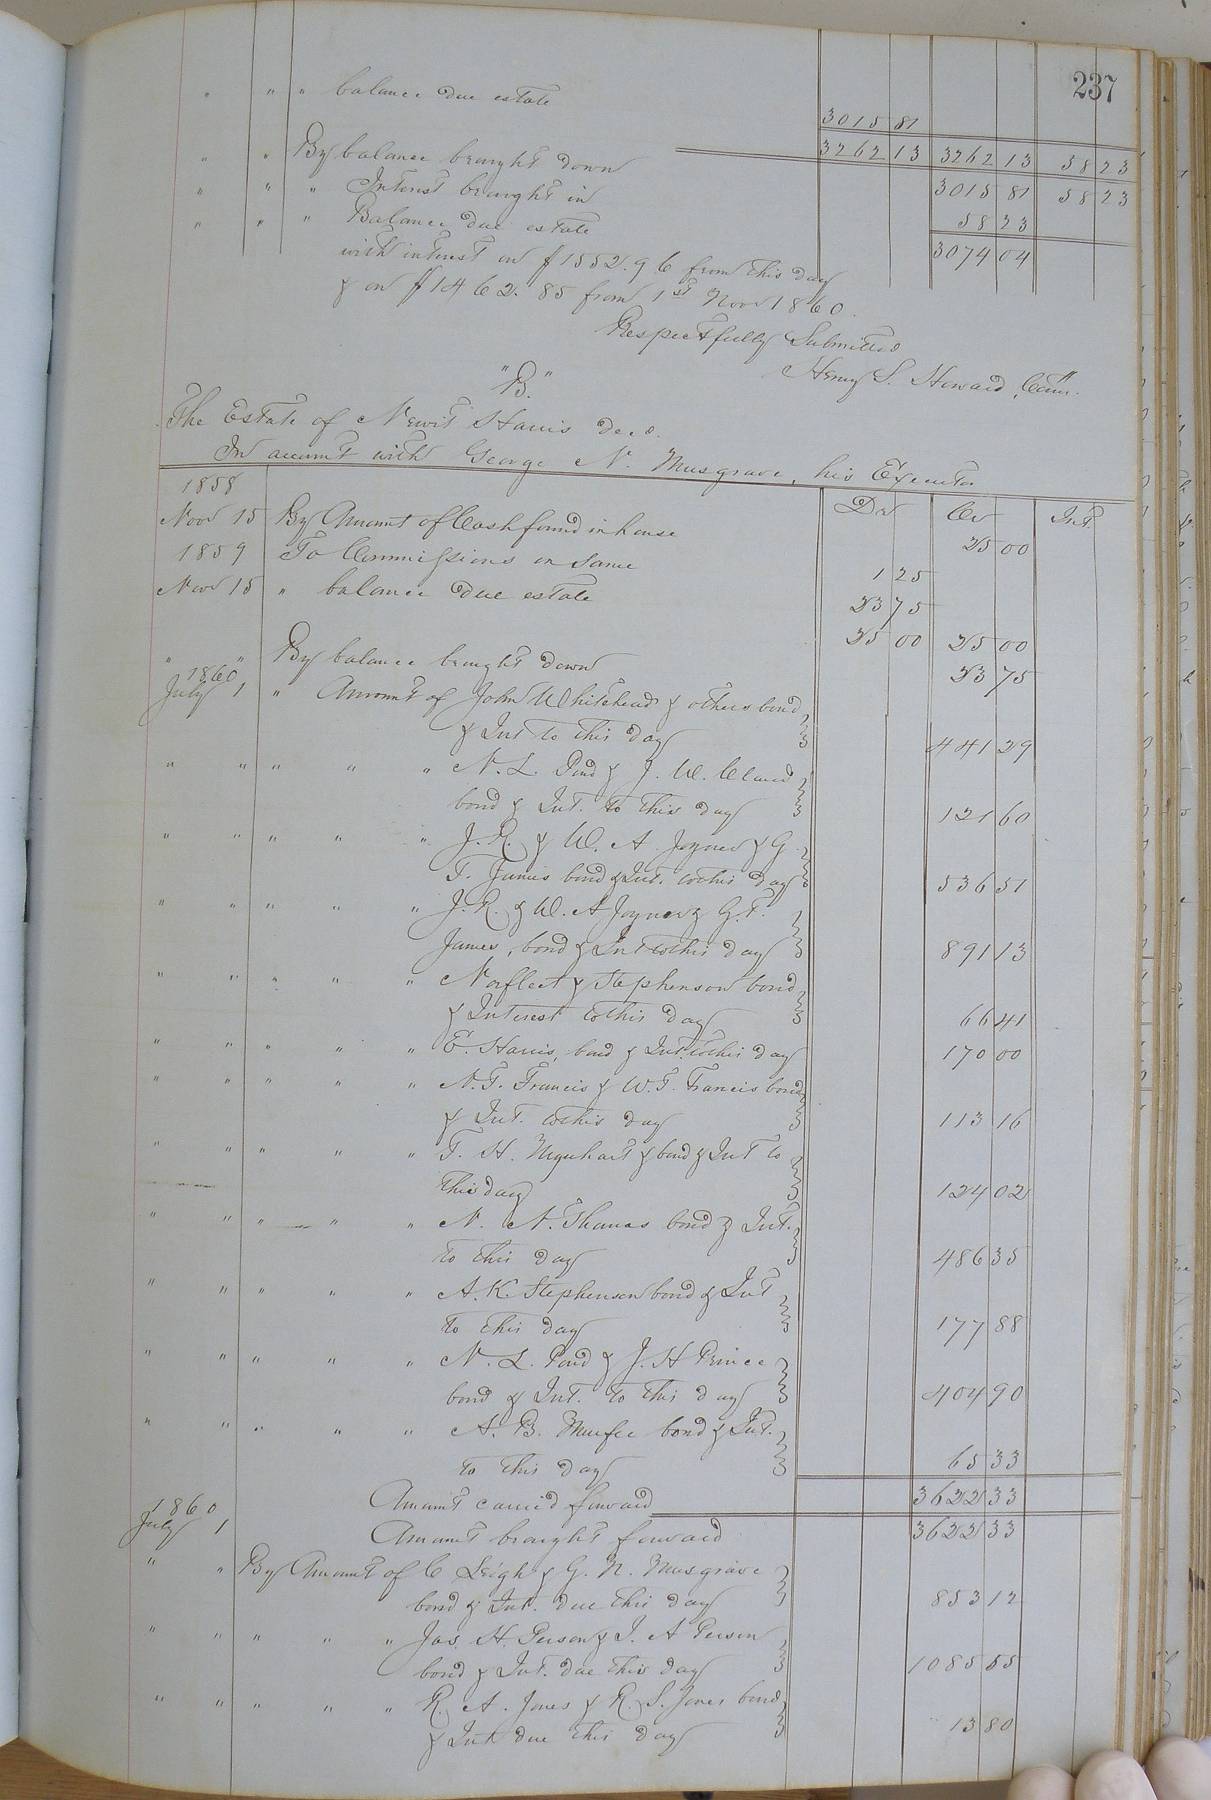 237
" " " balance due estate 3015 81
3262 13 3262 13 58 23
" " By balance brought down 3015 81 58 23
" " " Interest brought in 58 23
" " " Balance due estate 3074 04
with interest on $1552.96 from this day
& on $1462.85 from 1st Novr 1860.
Respectfully Submitted
Henry S. Howard, Com.
"B."
The Estate of Newit Harris decd.
In account with George N. Musgrave, his Executor
1858 Dr Cr Int.
Novr 15 By Amount of Cash found in house 25 00
1859 To Commissions on same 1 25
Novr 15 " balance due estate 23 75
25 00 25 00
" " By balance brought down 23 75
1860
July 1 " Amount of John Whitehead & others bond
& Int to this day 441 29
" " " " " N. L. Pond & J. W. Claud
bond & Int. to this day 121 60
" " " " " J. R. & W. A. Joyner & G.
T. James bond & Int. to this day 536 51
" " " " " J. R. & W. A Joyner & G. T.
James, bond & Int to this day 891 13
" " " " " Norfleet & Stephenson bond
& Interest to this day 66 41
" " " " " E. Harris, bond & Int. to this day 170 00
" " " " " N. T. Francis & W. T. Francis bond
& Int. to this day 113 16
" " " " " T. H. Urquhart & bond & Int to
this day 124 02
" " " " " N. N. Thomas bond & Int.
to this day 486 35
" " " " " A. K. Stephenson bond & Int
to this day 177 88
" " " " " N. L. Pond & J. H Prince
bond & Int. to this day 404 90
" " " " " A. B. Murfee bond & Int.
to this day 65 33
Amount carried forward 3622 33
1860
July 1 Amount brought forward 3622 33
" " By Amount of C Leigh & G. N. Musgrave
bond & Int. due this day 853 12
" " " " " Jas. H. Person & J. A Person
bond & Int. due this day 1085 55
" " " " " R. A. Jones & R. S. Jones bond
& Int due this day 13 80